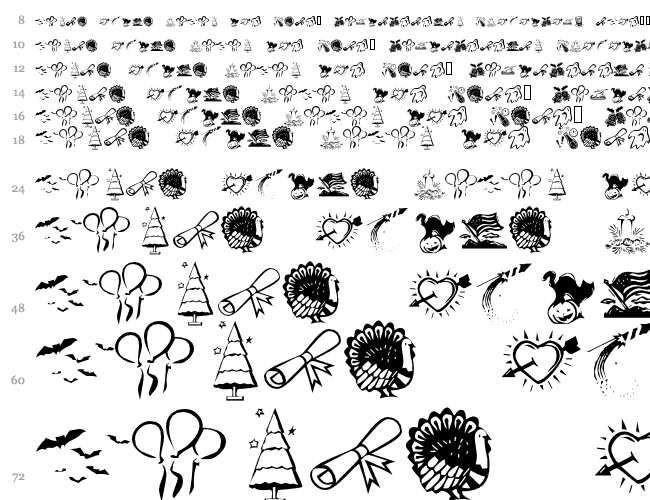 8
10
12
14
16
18
24
36
48
60
72